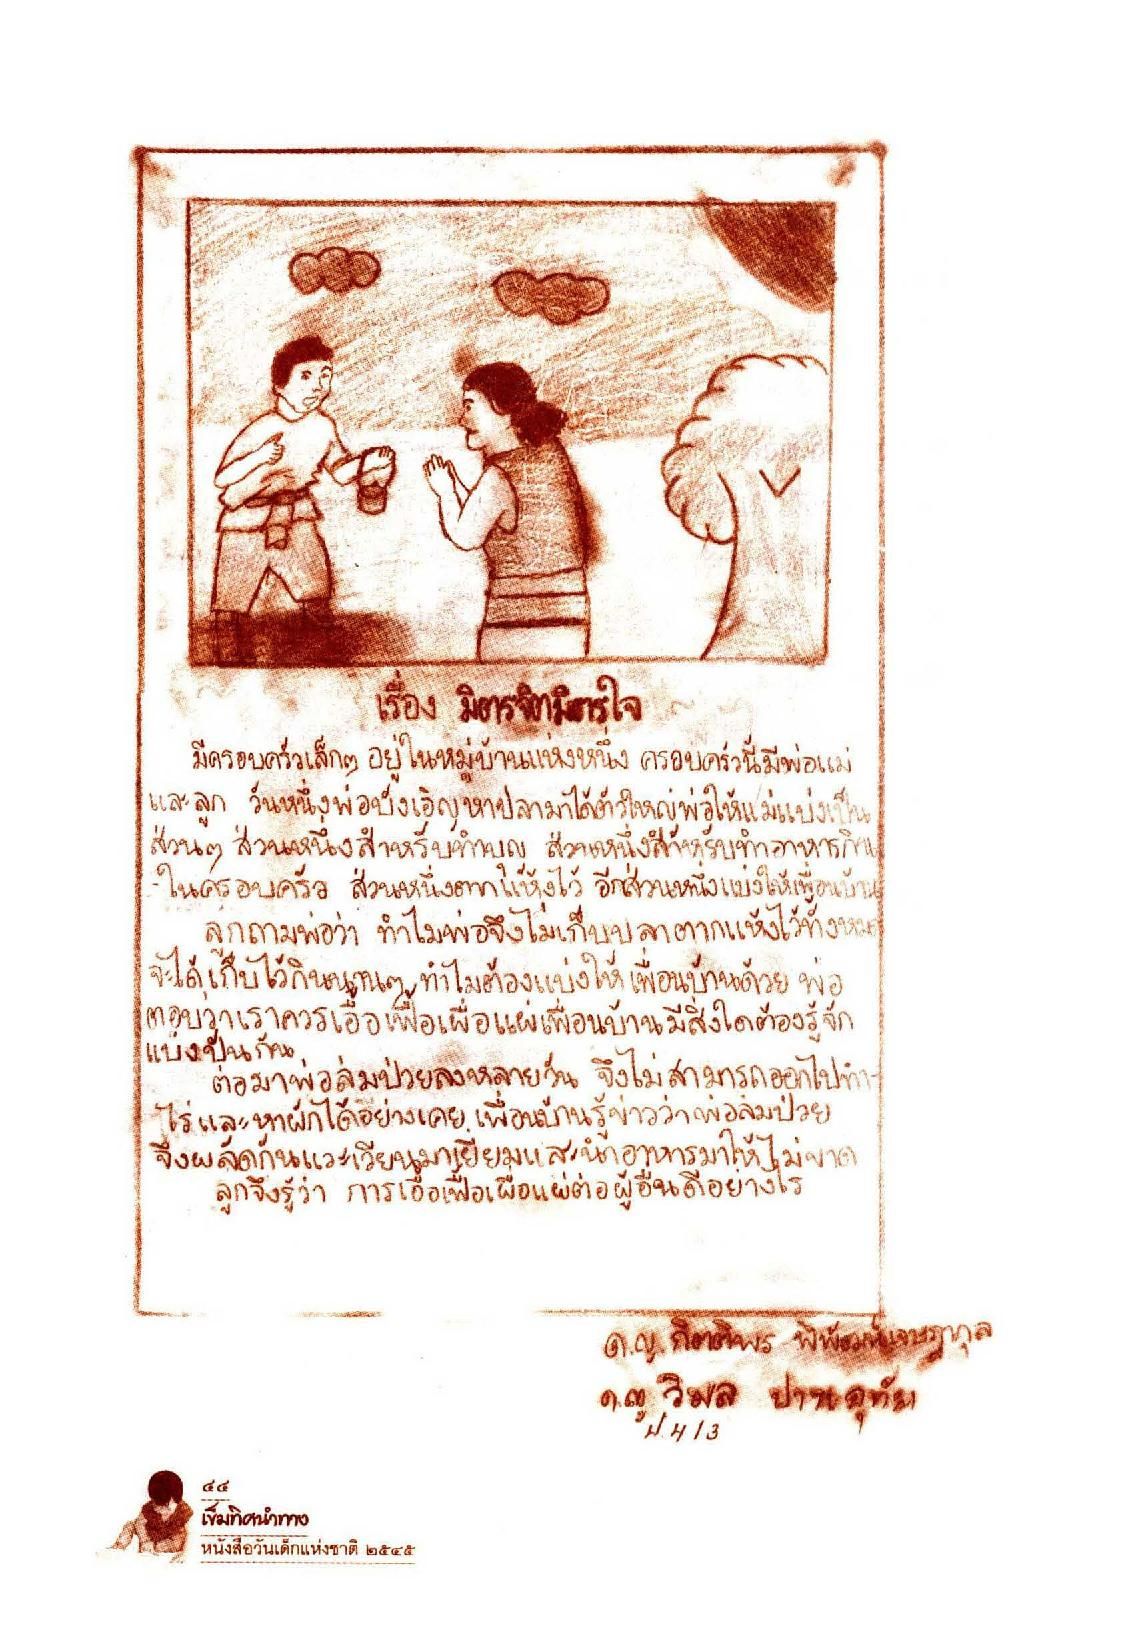 เรื่อง มิตรจิตมิตรใจ
มีครอบครัวเล็กๆ อยู่ในหมู่บ้านแห่งหนึ่ง ครอบครัวนี้มีพ่อแม่
และลูก วันหนึ่งพ่อบังเอิญหาปลามาได้ตัวใหญ่พ่อให้แม่แบ่งเป็น
ส่วนๆ ส่วนหนึ่งสำหรับทำบุญ ส่วนหนึ่งสำหรับทำอาหารกิน
ในครอบครัว ส่วนหนึ่งตากแห้งไว้ อีกส่วนหนึ่งแบ่งให้เพื่อนบ้าน
ลูกถามพ่อว่า ทำไมพ่อจึงไม่เก็บปลาตากแห้งไว้ทั้งหมด
จะได้เก็บไว้กินนานๆ ทำไมต้องแบ่งให้เพื่อนบ้านด้วย พ่อ
ตอบว่าเราควรเอื้อเฟื้อเผื่อแผ่เพื่อนบ้านมีสิ่งใดต้องรู้จัก
แบ่งปันกัน
ต่อมาพ่อล้มป่วยลงหลายวัน จึงไม่สามารถออกไปทำ
ไร่และหาผักได้อย่างเคย เพื่อนบ้านรู้ข่าวว่าพ่อล้มป่วย
จึงผลัดกันแวะเวียนมาเยี่ยมและนำอาหารมาให้ไม่ขาด
ลูกจึงรู้ว่า การเอื้อเฟื้อเผื่อแผ่ต่อผู้อื่นดีอย่างไร
ด.ญ. กิตติพร
ด.ญ วิมล ปานอุทัย
ป.4/3
๔๔
เข็มทิศนำทาง
หนังสือวันเด็กแห่งชาติ ๒๕๔๕